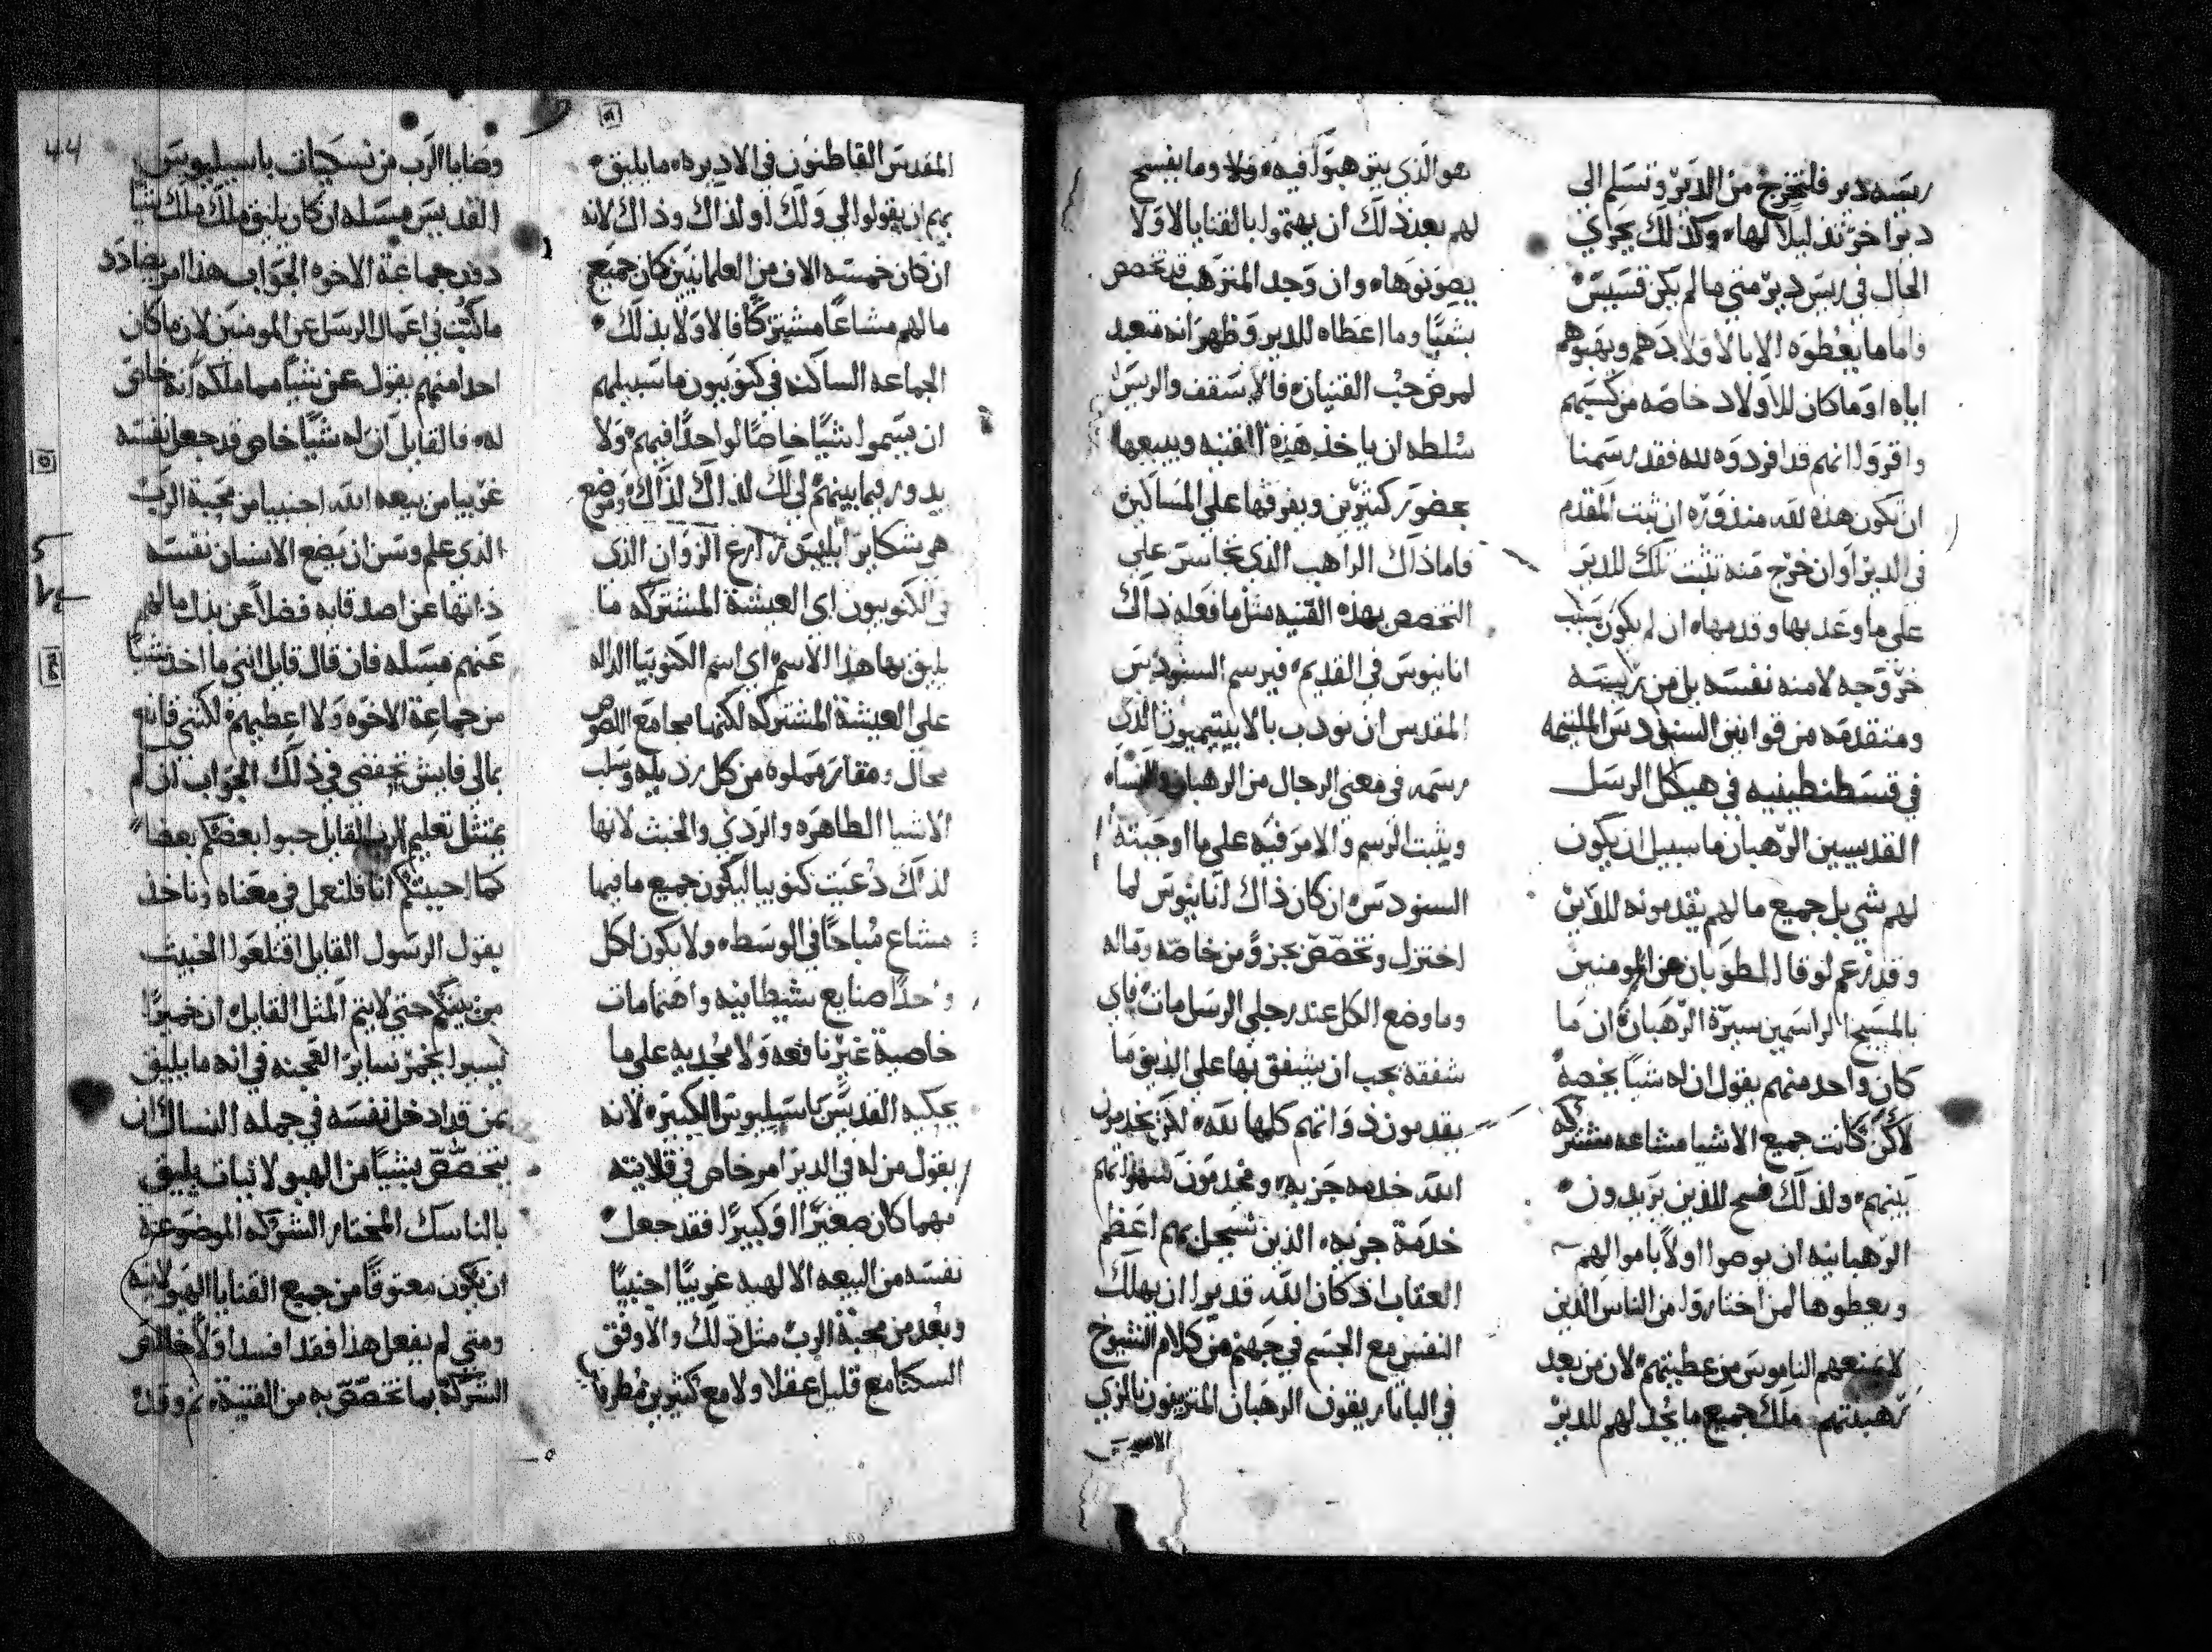 ريسه دير فلتخرج من الدير وتسلم الى
ديرا اخر تذليلا لها وكذلك يجري
الحال في ريس دير متي ما لم يكن قسيس
فاما ما يعطوه الابا لاولادهم ويهبوهم
اياه او ما كان للاولاد خاصه من كسبهم
واقروا انهم قد افردوه لله فقد رسمنا
ان تكون هذه لله منذوره ان ثبت المقدم
في الدير او ان خرج منه تثبت تلك للدير
على ما وعد بها وقدمها ان لم يكون بسبب
خروجه لا منه نفسه بل من ريسه
ومتقدمه من قوانين السنودس الملتيمه
في قسطنطينيه في هيكل الرسل
القديسين الرهبان ما سبيل ان يكون
لهم شي بل جميع ما لهم يقدمونه للدير
وقد زعم لوقا المطوبان عن المومنين
بالمسيح الراسمين سيرة الرهبان ان ما
كان واحد منهم يقول ان له شيا يخصه
لاكن كانت جميع الاشيا مشاعه مشتركه
بينهم ولذلك فسح للذين يريدون
الرهبانيه ان يوصوا اولا باموالهم
ويعطوها لمن اختاروا من الناس الذين
لا يمنعهم الناموس من عطيتهم لان من بعد
رهبنتهم ملك جميع ما يجد لهم للدير
هو الذي يترهبوا فيه وما يفسح
لهم بعد ذلك ان يهتموا بالقنايا الا ولا
يصونوها وان وجد المترهب قد تخصص
بشيا وما اعطاه للدير وظهر انه متعبد
لمرض حب القنيان فالاسقف والريس
سلطه ان ياخذ هذه القنيه ويبيعها
بحضور كثيرين ويفرقها على المساكين
فاما ذاك الراهب الذي تجاسر على
التخصص بهذه القنيه مثل ما فعله ذاك
انانيوس في القديم فيرسم السنودس
المقدس ان يودب بالابيتيميون الذي
رسمه في معنى الرجال من الرهبان والنساء
ويثبت الرسم والامر فيه على ما اوجبته
السنودس ان كان ذاك انانيوس لما
اختزل وتخصص بجزو من خاصه وماله
وما وضع الكل عند رجلي الرسل مات فاي
شفقه يجب ان يشفق بها على الذين ما
يقدمون ذواتهم كلها لله لكن يخدمون
الله خدمه جزيه ويخدمون شهواتهم
خدمة جزيه الذين تسجل بهم اعظم
العقاب اذ كان الله قديرا ان يهلك
النفس مع الجسم في جهنم من كلام الشيوخ
في الباتاريقون الرهبان المتزيفون بالزي
الاسمي
المقدس القاطنون في الاديره ما يليق
بهم ان يقولوا لي ولك او لذاك وذاك لانه
ان كان خمسه الاف من العلمانيين كان جميع
ما لهم مشاعا مشتركا فالاولا بذلك
الجماعه الساكنه في كنوبيون ما سبيلهم
ان يسموا شيا خاصا لواحدا فيهم ولا
يدور فيما بينهم لي لك لذاك لذاك وموضع
هي شكاير ابليس زارع الزوان الذي
في الكنوبيون اي العيشة المشتركه ما
يليق بها هذا الاسم اي اسم الكنوبيا الداله
على العيشة المشتركه لكنها مجامع اللصوص
محال ومقار مملوه من كل رذيله وسلب
الاشيا الطاهره والردي والخبث لانها
لذلك دعيت كنوبيا ليكون جميع ما فيها
مشاع مباحا في الوسط ولا يكون لكل
واحدا صنايع شيطانيه واهتمامات
خاصية غير نافعه ولا مجديه على ما
يحكيه القديس باسيليوس الكبير لانه
يقول من له في الدير امر خاص في قلايته
مهما كان صغيرا او كبيرا فقد جعل
نفسه من البيعه الالهيه غريبا اجنبيا
وبعد من محبة الرب مثل ذلك والاوفق
السكنا مع قليل عقلا ولا مع كثيرين مطرفا
44
وضايا الرب من نسجيات باسيليوس
القديس مسله ان كان يليق ملك ملك شيا
دون جماعة الاخوه الجواب هذا امر يضادد
ما كتب في اعمال الرسل عن المومنين لان ما كان
احدا منهم يقول عن شيا مما ملكه انه خاص
له فالقايل ان له شيا خاص قد جعل نفسه
غريبا من بيعه الله اجنبيا من محبة الرب
الذي علم وسن ان يضع الانسان نفسه
ذاتها عن اصدقايه فضلا عن بذل ما لهم
عنهم مسله فان قال قايل انني ما اخذ شيا
من جماعة الاخوه ولا اعطيهم لكنني قانع
بمالي فايش تحفضي في ذلك الجواب ان لم
يمتثل تعليم الرب القايل حبوا بعضكم بعضا
كما احببتكم انا فلنعمل في معناه وناخذ
بقول الرسول القايل اقتلعوا الخبيث
من بينكم حتى لا يتم المثل القايل ان خميرا
يسيرا يخمر ساير العجنه في انه ما يليق
بمن قد ادخل نفسه في جمله النساك ان
يتخصص بشيا من الهيولانيات يليق
بالناسك المختار الشركه الموضوعة
ان يكون معتوقا من جميع القنايا الهيولانيه
ومتي لم يفعل هذا فقد افسد اولا خالص
الشركة بما تخصص به من القنية ثم وقد